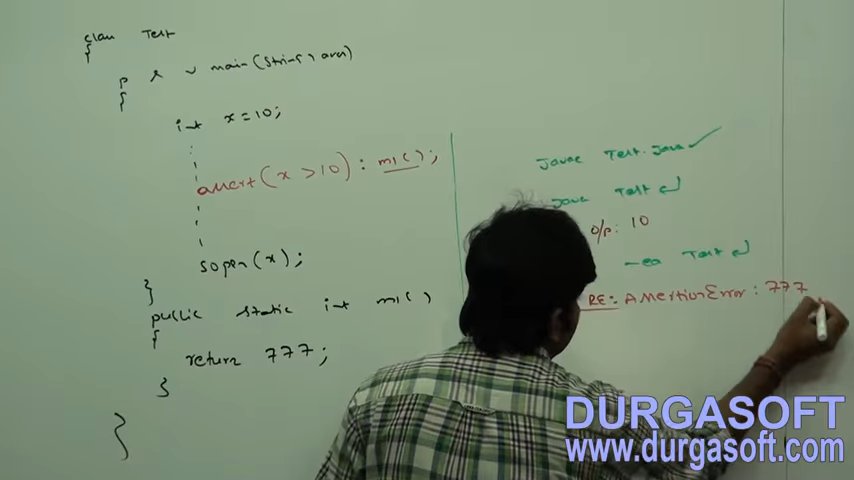 class Test
{
p s v main(String[] args)
{
int x = 10;
assert(x > 10) : m1();
sopln(x);
}
public static int m1()
{
return 777;
}
}
javac Test.java ✓
java Test ↵
o/p: 10
-ea Test ↵
RE: AssertionError: 777
DURGASOFT
www.durgasoft.com